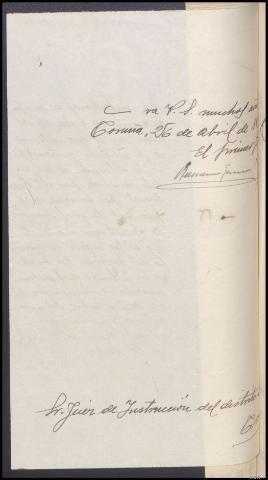 va V. S. muchos
Coruña, 26 de Abril de
El
Sr. Juez de Instrucción del distrito